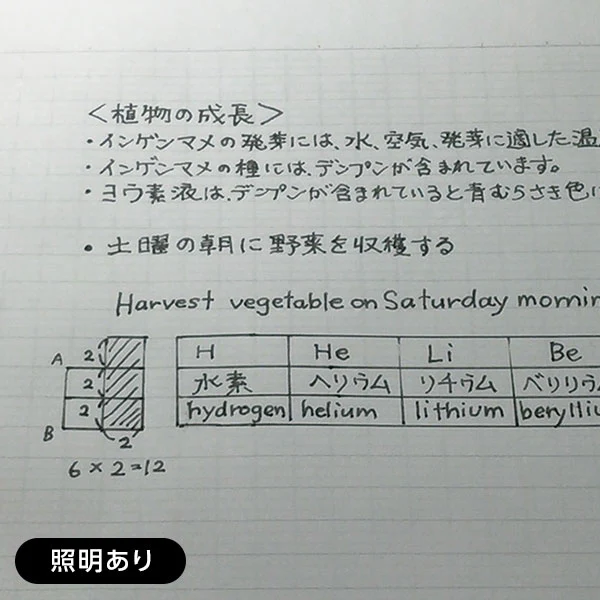 ＜植物の成長＞
・インゲンマメの発芽には、水、空気、発芽に適した温
・インゲンマメの種には、デンプンが含まれています。
・ヨウ素液は、デンプンが含まれていると青むらさき色に
・土曜の朝に野菜を収穫する
Harvest vegetable on Saturday mornin
H He Li Be
水素 ヘリウム リチウム ベリリウ
hydrogen helium lithium berylliu
A 2
2
2
B 2
6 × 2 = 12
照明あり